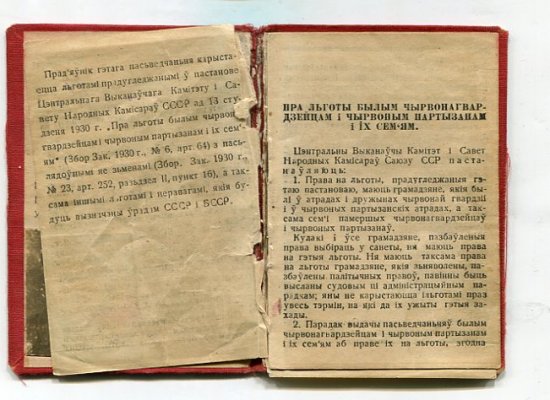 Прад'яўнік гэтага пасьведчаньня карыста-
ецца льготамі прадугледжанымі ў пастанове
Цэнтральнага Выканаўчага Камітэту і Са-
вету Народных Камісараў СССР ад 13 сту-
дзеня 1930 г. „Пра льготы былым чырвона-
гвардзейцам і чырвоным партызанам і іх сем'-
ям" (Збор Зак. 1930 г., № 6, арт. 64) з пась-
лядоўнымі яе зьменамі (Збор. Зак. 1930 г.,
№ 23, арт. 252, разьдзел II, пункт 16), а так-
сама іншымі льготамі і перавагамі, якія бу-
дуць вызначаны ўрадім СССР і БССР.
ПРА ЛЬГОТЫ БЫЛЫМ ЧЫРВОНАГВАР-
ДЗЕЙЦАМ І ЧЫРВОНЫМ ПАРТЫЗАНАМ
І ІХ СЕМ'ЯМ.
Цэнтральны Выканаўчы Камітэт і Савет
Народных Камісараў Саюзу ССР паста-
наўляюць:
1. Права на льготы, прадугледжаныя гэ-
таю пастановаю, маюць грамадзяне, якія бы-
лі ў атрадах і дружынах чырвонай гвардыі
і ў чырвоных партызанскіх атрадах, а так-
сама сем'і памершых чырвонагвардзейцаў
і чырвоных партызанаў.
Кулакі і ўсе грамадзяне, пазбаўленыя
права выбіраць у саветы, ня маюць права
на гэтыя льготы. Ня маюць таксама права
на льготы грамадзяне, якія зьняволены, па-
збаўлены палітычных правоў, павінны быць
высланы судовым ці адміністрацыйным па-
радкам; яны не карыстаюцца ільготамі праз
увесь тэрмін, на які да іх ужыты гэтыя за-
хады.
2. Парадак выдачы пасьведчаньняў былым
чырвонагвардзейцам і чырвоным партызанам
і іх сем'ям аб праве іх на льготы, згодна